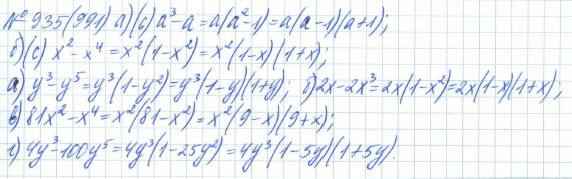 № 935(991) а)(с) a³-a=a(a²-1)=a(a-1)(a+1);
б)(с) x²-x⁴=x²(1-x²)=x²(1-x)(1+x);
а) y³-y⁵=y³(1-y²)=y³(1-y)(1+y); б) 2x-2x³=2x(1-x²)=2x(1-x)(1+x);
в) 81x²-x⁴=x²(81-x²)=x²(9-x)(9+x);
г) 4y³-100y⁵=4y³(1-25y²)=4y³(1-5y)(1+5y).